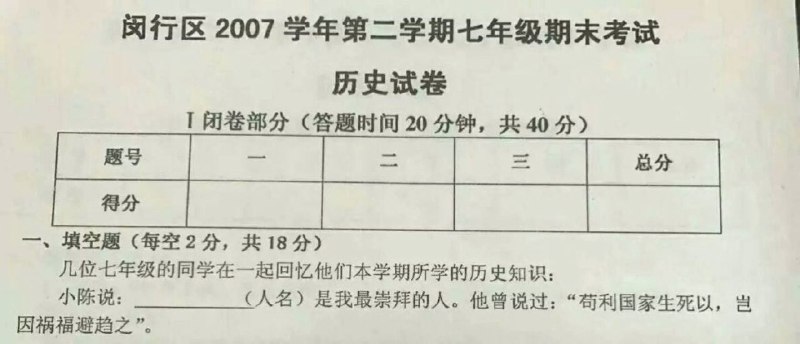 闵行区 2007 学年第二学期七年级期末考试
历史试卷
I 闭卷部分（答题时间 20 分钟，共 40 分）
题号 一 二 三 总分
得分
一、填空题（每空 2 分，共 18 分）
几位七年级的同学在一起回忆他们本学期所学的历史知识：
小陈说：__________（人名）是我最崇拜的人。他曾说过：“苟利国家生死以，岂
因祸福避趋之”。